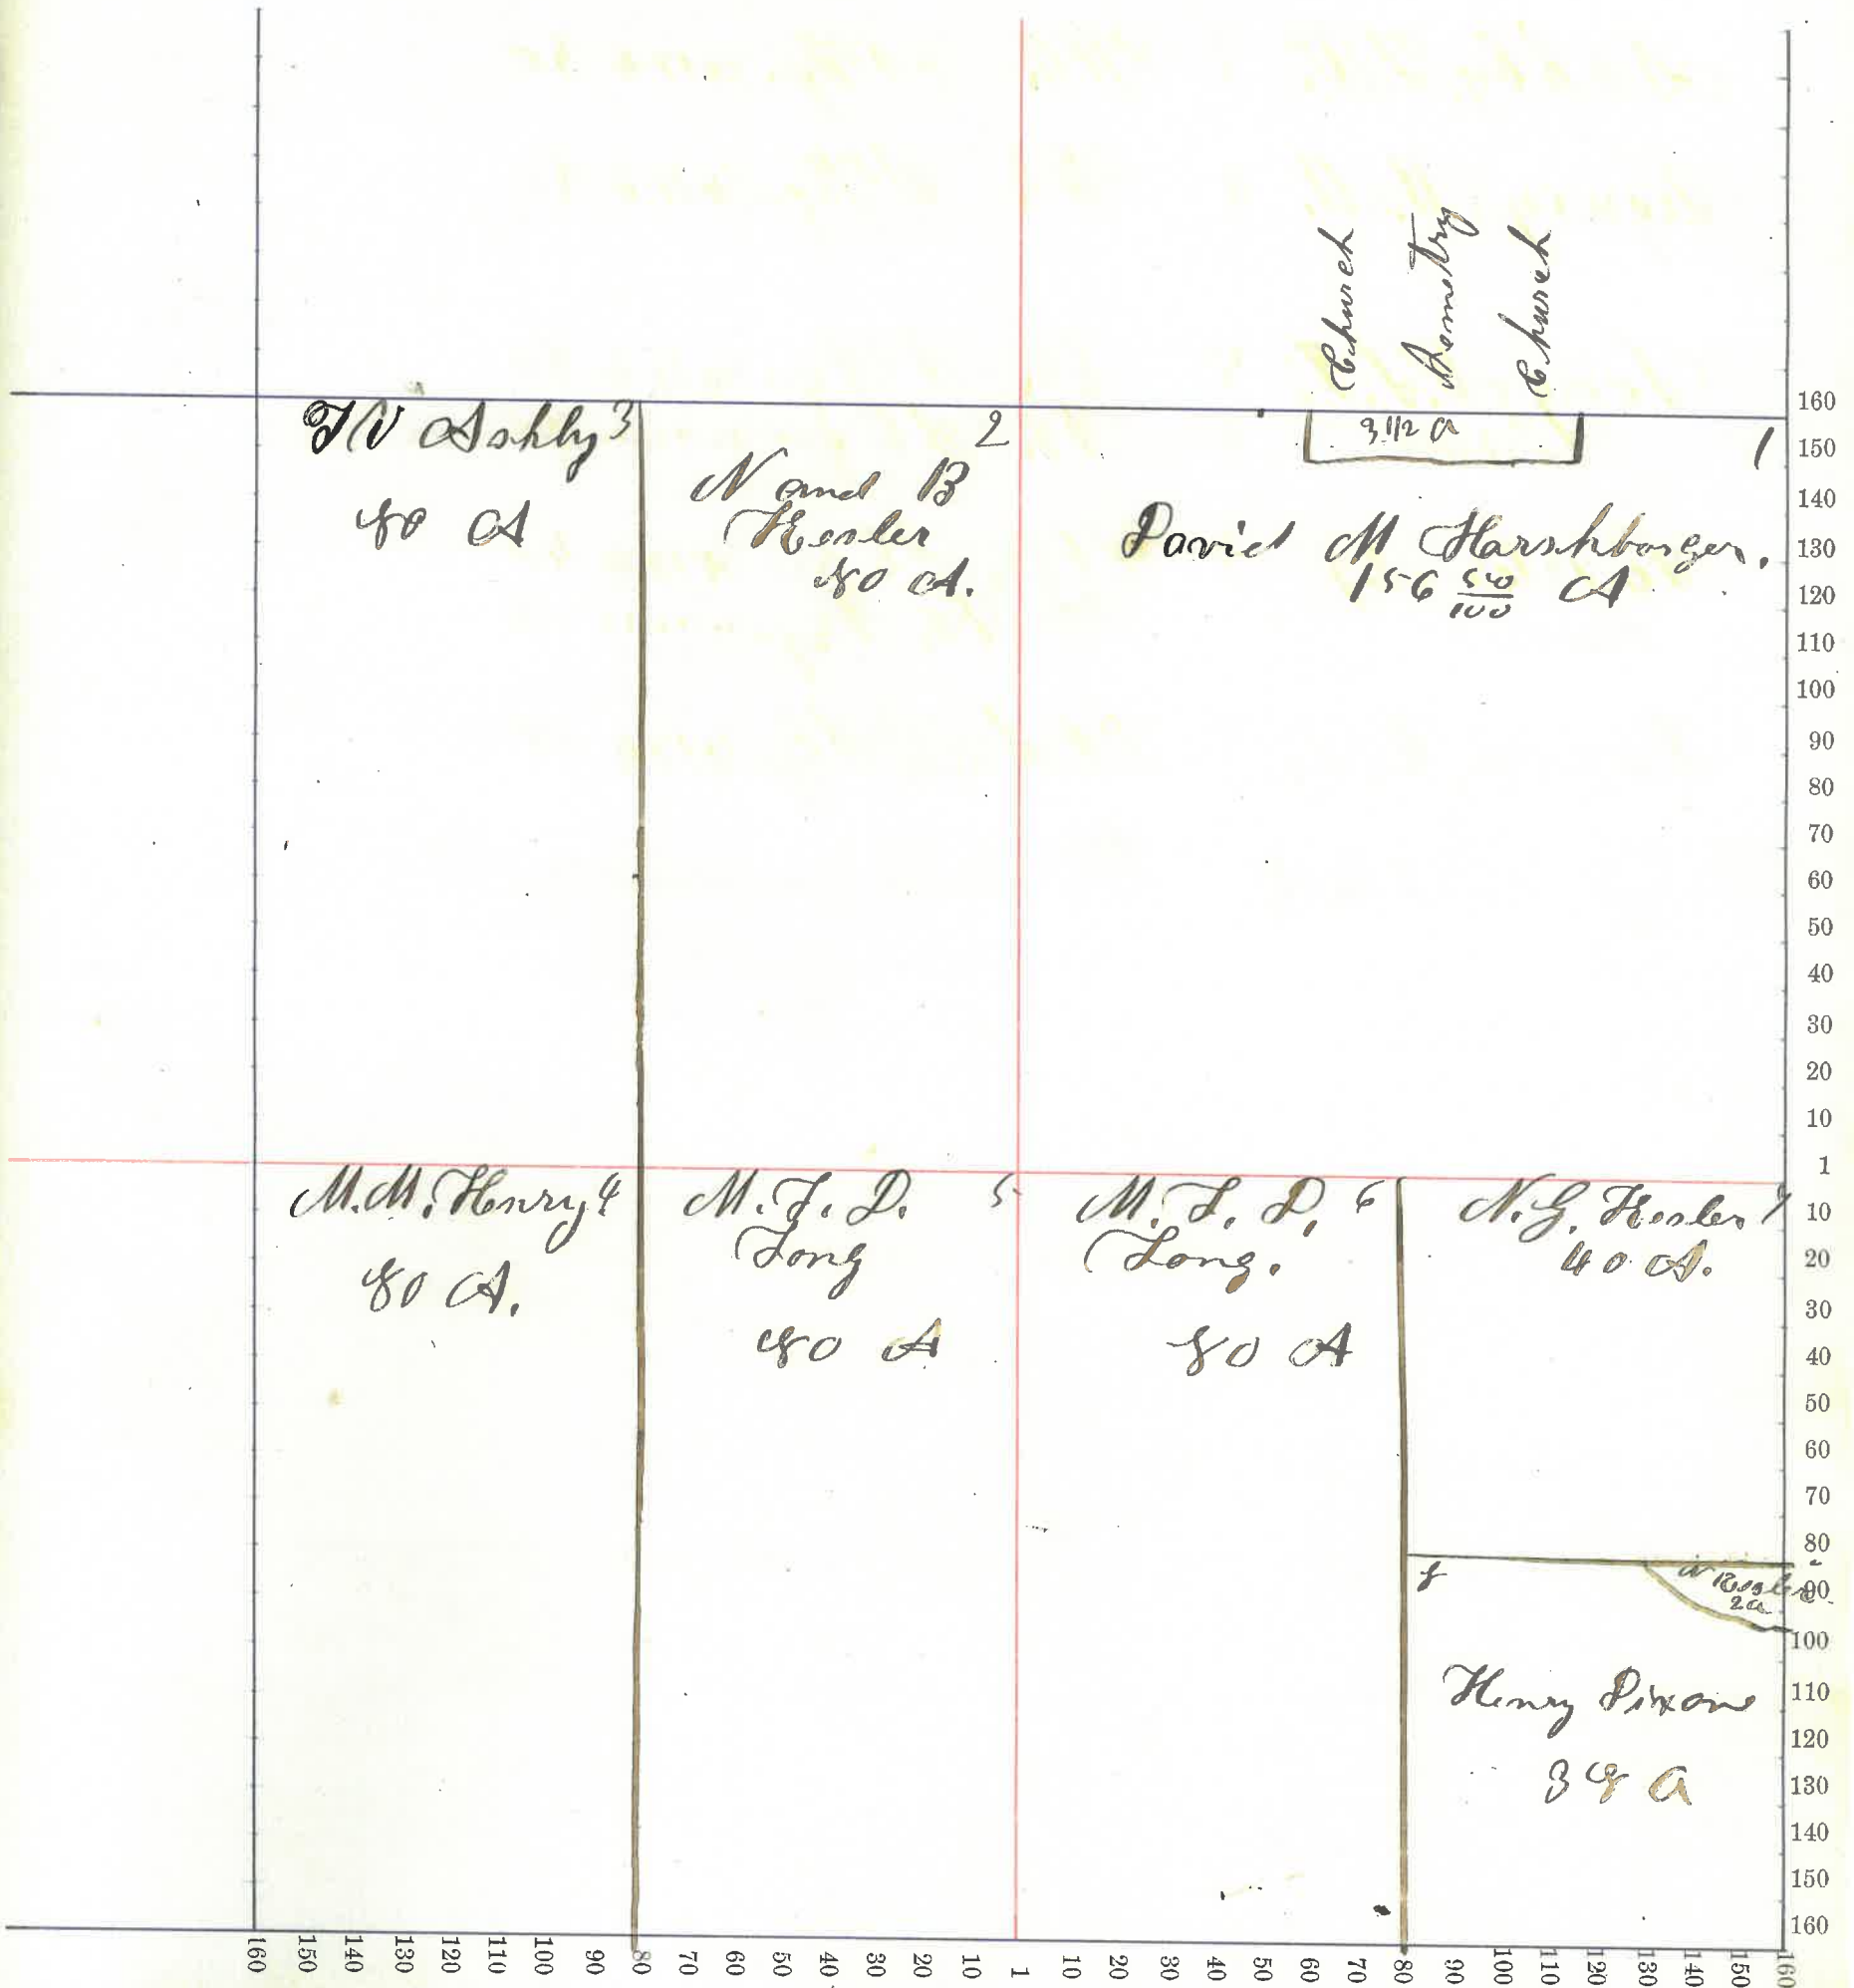 Church
Church
3 1/2 a
1
David M Harshbarger.
156 50/100 A
2
N and B
Kesler
80 A.
3
Ashby
80 A
M.M. Henry 4
80 A.
M. F. D. 5
Long
80 A
M. F. D. 6
Long.
80 A
N. G. Kesler 7
40 A.
8
N Kesler
2a
Henry Dixon
38 a
160
150
140
130
120
110
100
90
80
70
60
50
40
30
20
10
1
10
20
30
40
50
60
70
80
90
100
110
120
130
140
150
160
160 150 140 130 120 110 100 90 80 70 60 50 40 30 20 10 1 10 20 30 40 50 60 70 80 90 100 110 120 130 140 150 160